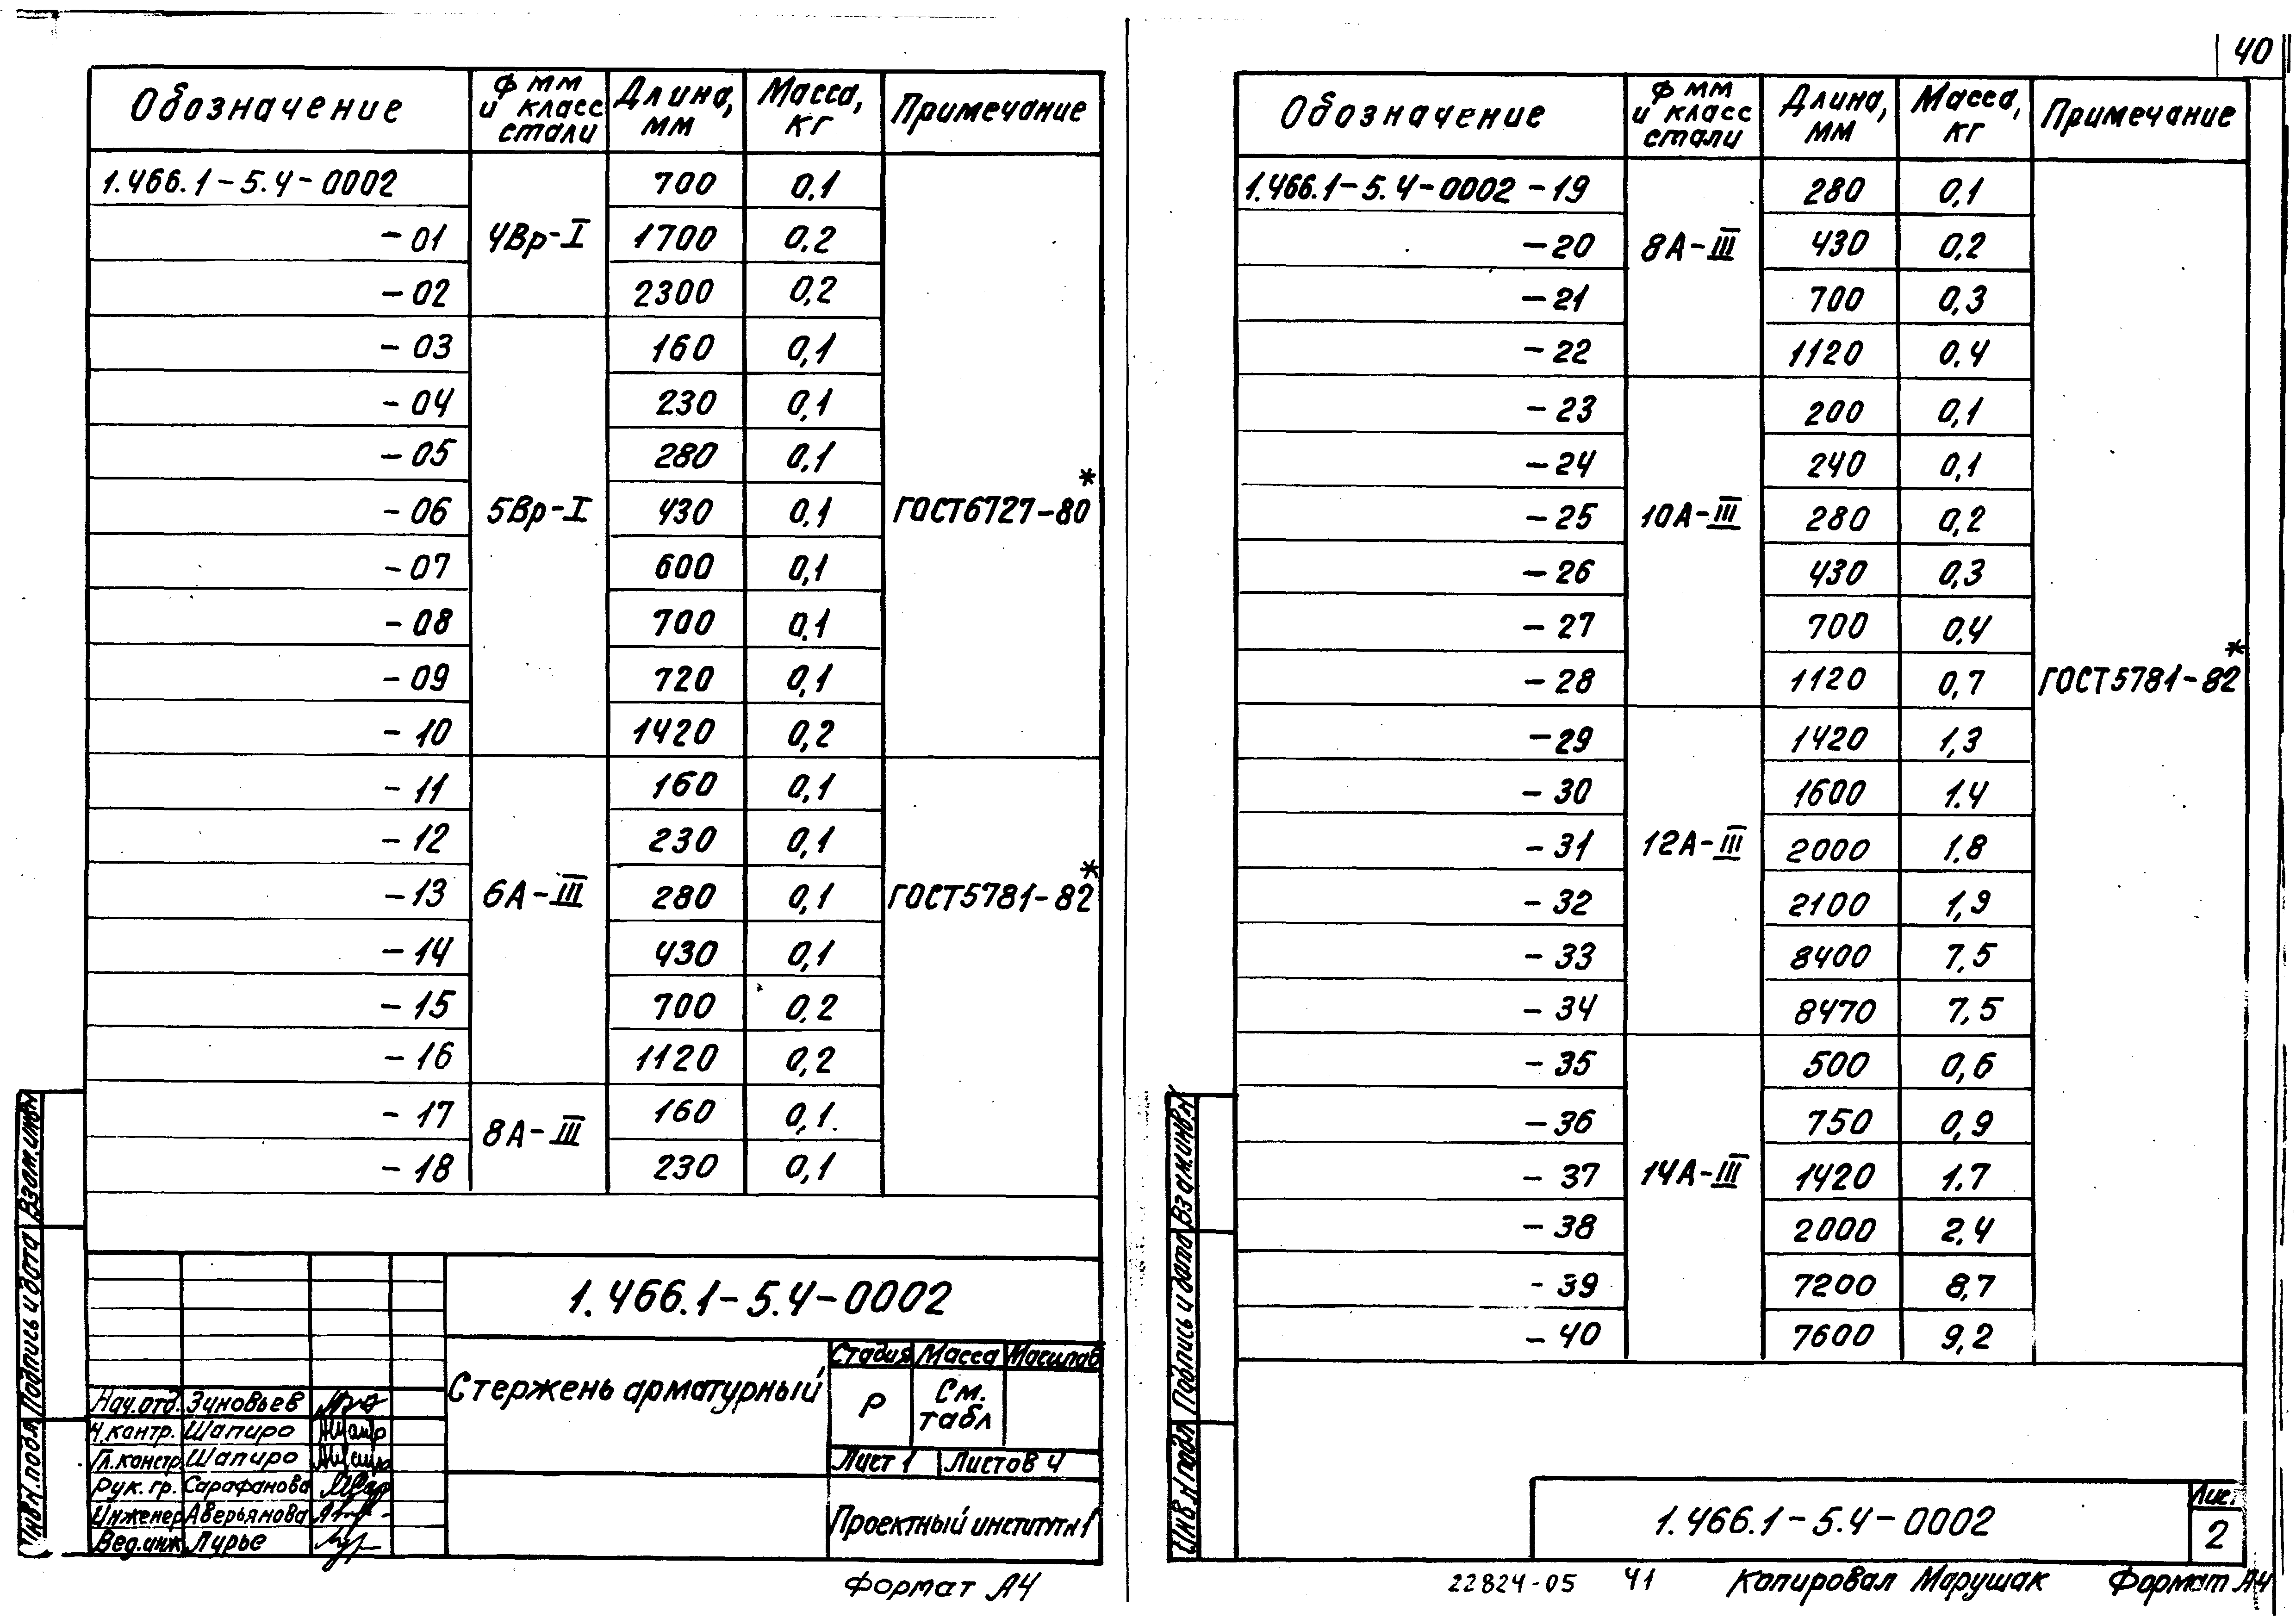 Обозначение | Ф мм и класс стали | Длина, мм | Масса, кг | Примечание
1.466.1-5.4-0002 | 4Вр-I | 700 | 0,1 | ГОСТ6727-80*
-01 | 1700 | 0,2
-02 | 2300 | 0,2
-03 | 5Вр-I | 160 | 0,1
-04 | 230 | 0,1
-05 | 280 | 0,1
-06 | 430 | 0,1
-07 | 600 | 0,1
-08 | 700 | 0,1
-09 | 720 | 0,1
-10 | 1420 | 0,2
-11 | 6А-III | 160 | 0,1 | ГОСТ5781-82*
-12 | 230 | 0,1
-13 | 280 | 0,1
-14 | 430 | 0,1
-15 | 700 | 0,2
-16 | 1120 | 0,2
-17 | 8А-III | 160 | 0,1
-18 | 230 | 0,1
Инв.N.подл. Подпись и дата Взам.инв.N
1.466.1-5.4-0002
Стержень арматурный
Стадия | Масса | Масштаб
Р | См. табл
Лист 1 | Листов 4
Проектный институт N1
Нач.отд. Зиновьев
Н.контр. Шапиро
Гл.констр. Шапиро
Рук. гр. Сарафанова
Инженер Аверьянова
Вед.инж. Лурье
Формат А4
40
Обозначение | Ф мм и класс стали | Длина, мм | Масса, кг | Примечание
1.466.1-5.4-0002-19 | 8А-III | 280 | 0,1 | ГОСТ5781-82*
-20 | 430 | 0,2
-21 | 700 | 0,3
-22 | 1120 | 0,4
-23 | 10А-III | 200 | 0,1
-24 | 240 | 0,1
-25 | 280 | 0,2
-26 | 430 | 0,3
-27 | 700 | 0,4
-28 | 1120 | 0,7
-29 | 12А-III | 1420 | 1,3
-30 | 1600 | 1.4
-31 | 2000 | 1,8
-32 | 2100 | 1,9
-33 | 8400 | 7,5
-34 | 8470 | 7,5
-35 | 14А-III | 500 | 0,6
-36 | 750 | 0,9
-37 | 1420 | 1.7
-38 | 2000 | 2,4
-39 | 7200 | 8,7
-40 | 7600 | 9,2
Инв.N подл Подпись и дата Взам.инв.N
1.466.1-5.4-0002
Лист
2
22824-05 41 Копировал Марушак Формат А4